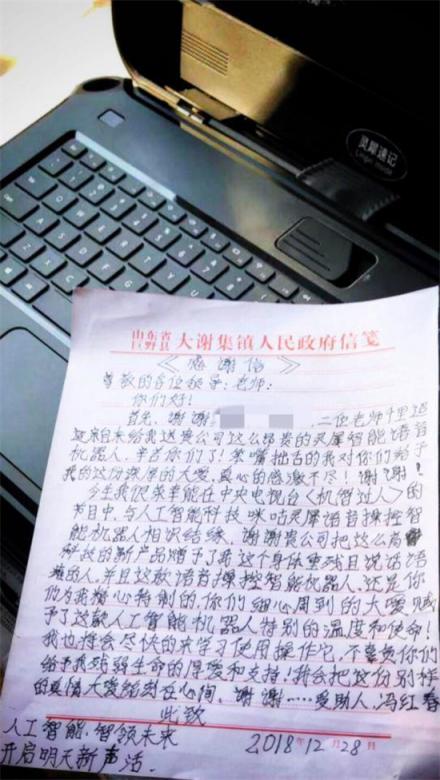 灵犀速记
山东省
巨野县
大谢集镇人民政府信笺
《感谢信》
尊敬的各位领导:老师:
你们好!
首先,谢谢
二位老师千里迢
迢亲自来给我送贵公司这么昂贵的灵犀智能语音
机器人,辛苦你们了!笨嘴拙舌的我对你们给予
我的这份深厚的大爱,真心的感激不尽!谢谢!
今生我很荣幸能在中央电视台《机智过人》的
节目中,与人工智能科技咪咕灵犀语音操控智
能机器人相识结缘。谢谢贵公司把这么高
科技的新产品赠予了我这个身体重残且说话语
障的人,并且这款语音操控智能机器人,还是你
们为我精心特制的,你们细心周到的大爱,赋
予了这款人工智能机器人特别的温度和使命!
我也将会尽快的来学习使用操作它,不辜负你们
给予我残弱生命的厚爱和支持!我会把这份别样
的真情大爱铭刻在心间。谢谢……受助人:冯红春
此致
人工智能,智领未来
开启明天新声活.
2018年12月28日